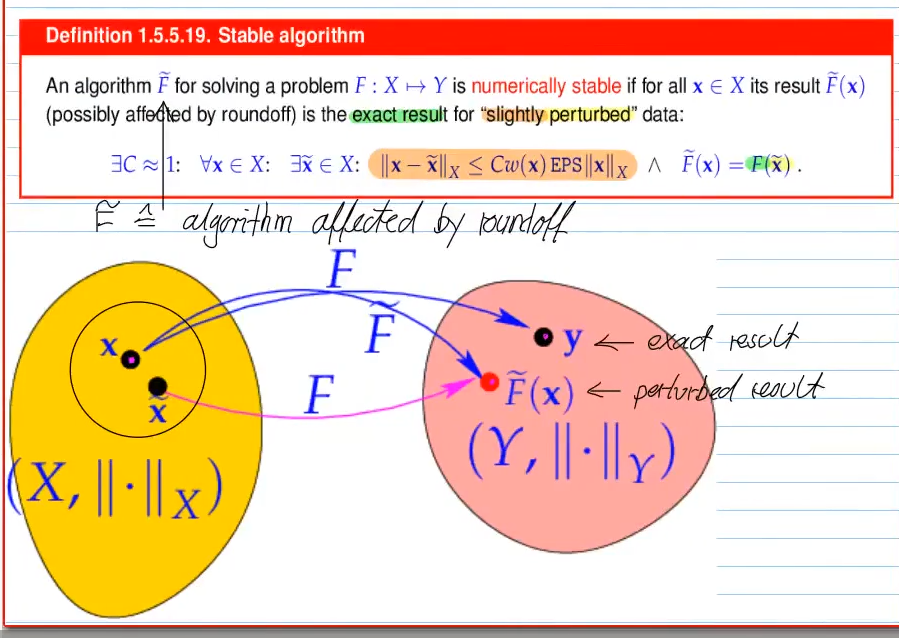 Definition 1.5.5.19. Stable algorithm
An algorithm F̃ for solving a problem F : X ↦ Y is numerically stable if for all x ∈ X its result F̃(x)
(possibly affected by roundoff) is the exact result for “slightly perturbed” data:
∃C ≈ 1: ∀x ∈ X: ∃x̃ ∈ X: ‖x − x̃‖_X ≤ Cw(x) EPS‖x‖_X ∧ F̃(x) = F(x̃) .
F̃ ≙ algorithm affected by roundoff
F
x
F̃
y ← exact result
x̃
F
F̃(x) ← perturbed result
(X, ‖·‖_X)
(Y, ‖·‖_Y)